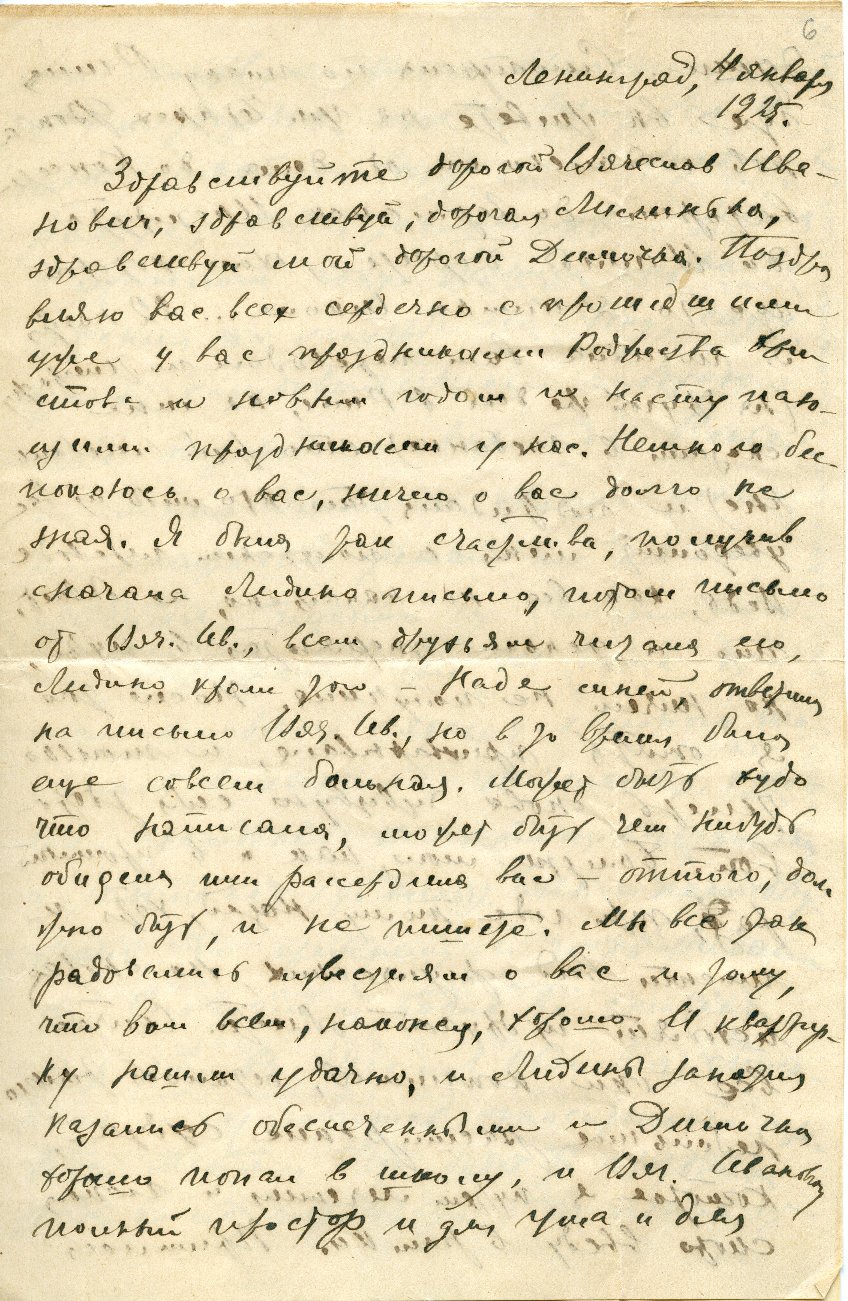 6
Ленинград, 4 января
1925.
Здравствуйте дорогой Вячеслав Ива-
нович, здравствуй, дорогая Лидинька,
здравствуй мой дорогой Димочка. Поздра
вляю вас всех сердечно с прошедшими
уже у вас праздниками Рождества Хри
стова и новым годом и наступаю-
щими праздниками у нас. Немного бес-
покоюсь о вас, ничего о вас долго не
зная. Я была так счастлива, получив
сначала Лидино письмо, потом письмо
от Вяч. Ив., всем друзьям читала его,
Лидино кроме того – Наде синей, ответила
на письмо Вяч. Ив., но в то время была
еще совсем больная. Может быть худо
что написала, может быть чем нибудь
обидела или рассердила вас – оттого, дол
жно быть, и не пишете. Мы все так
радовались известиям о вас и тому,
что вам всем, наконец, хорошо И квартир-
ку нашли удачно, и Лидины занятия
казались обеспеченными и Димочка
хорошо попал в школу, и Вяч. Ивановичу
полный простор и для ума и для